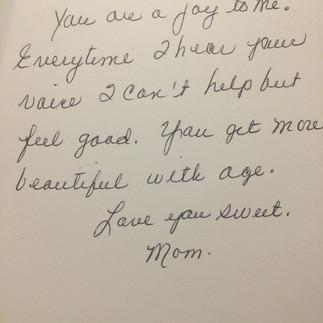 You are a joy to me.
Everytime I hear your
voice I can't help but
feel good. You get more
beautiful with age.
Love you sweet.
Mom.